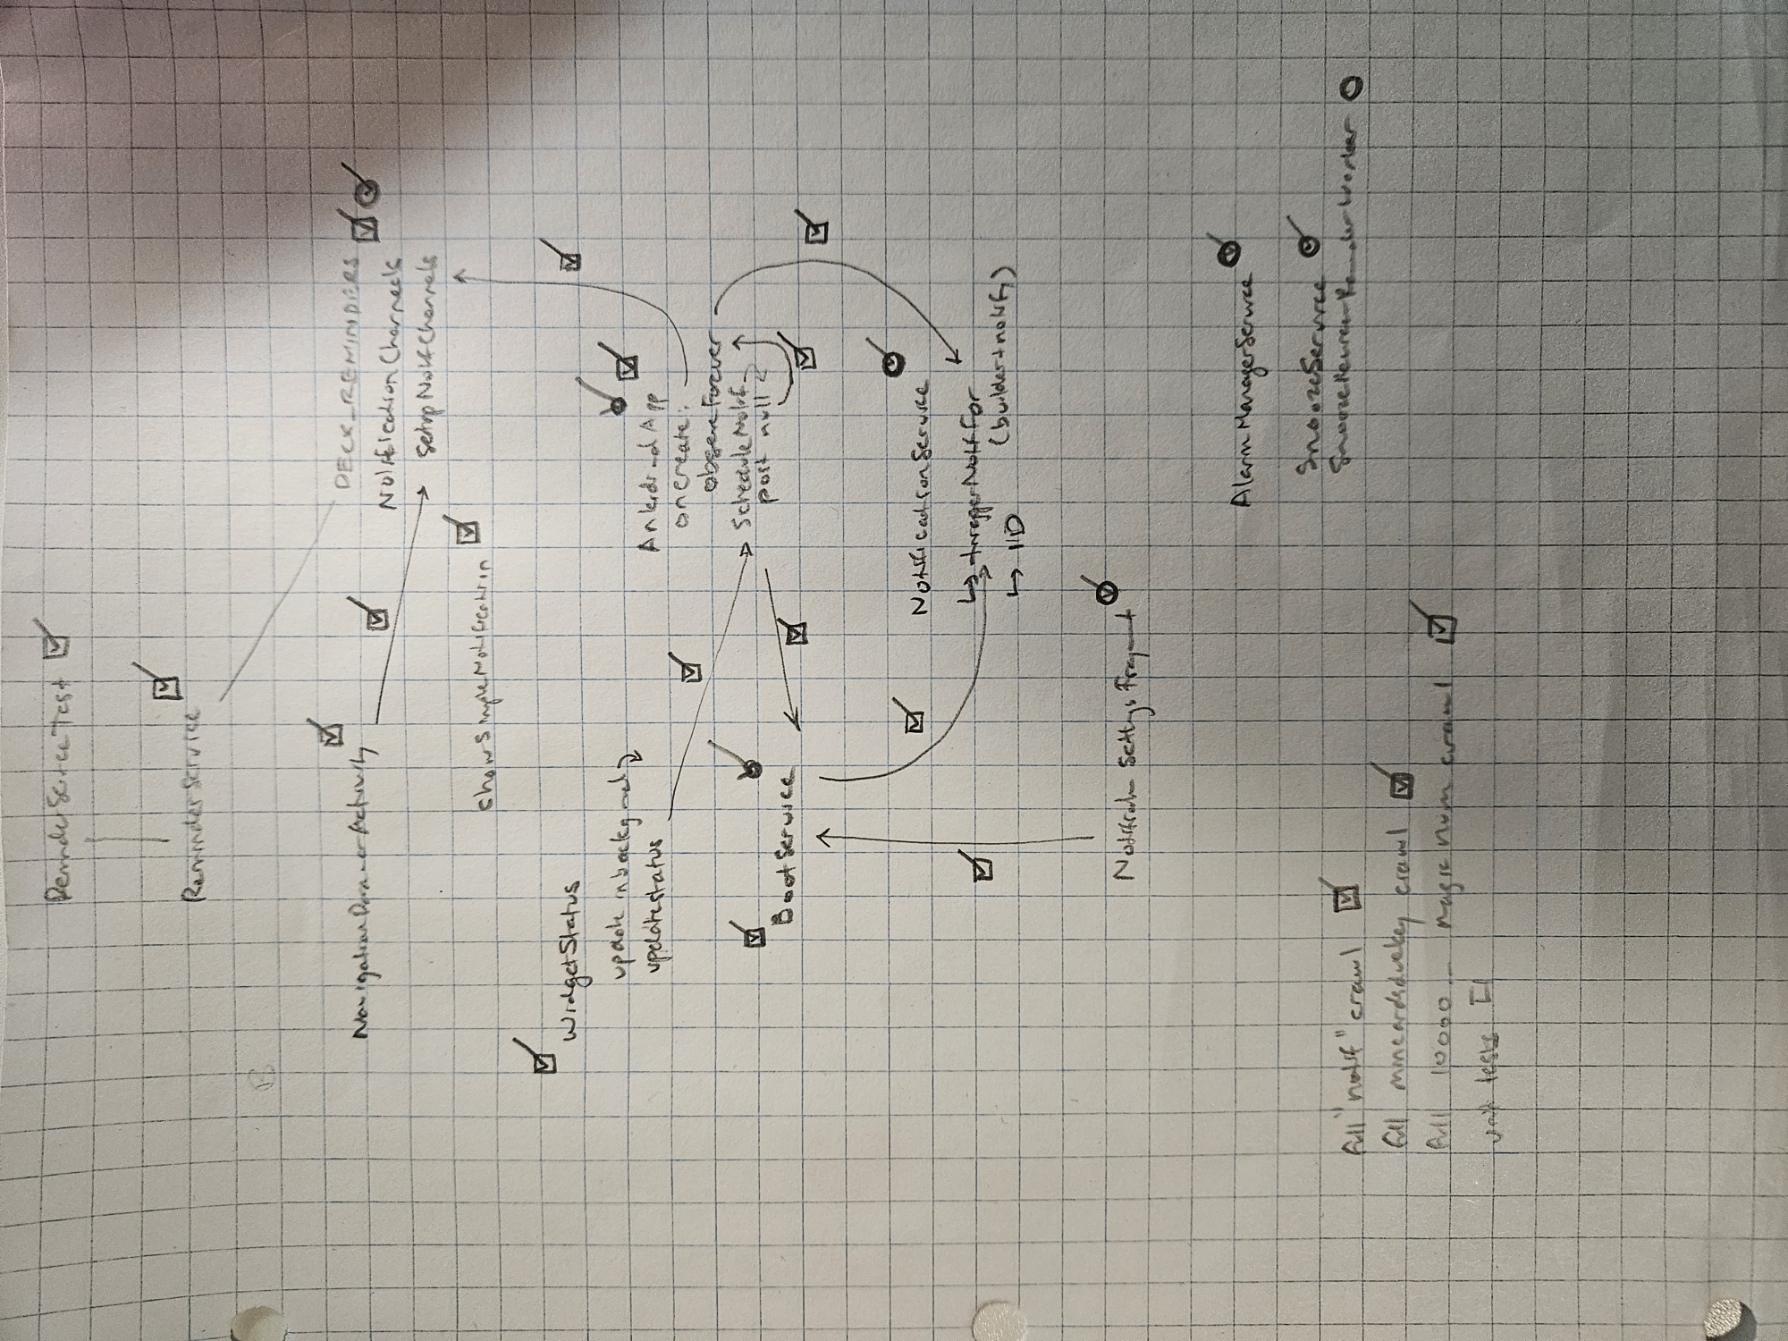 ReminderServiceTest
ReminderService
NavigationDrawerActivity
DECK_REMINDERS
NotificationChannels
SetupNotifChannels
showSimpleNotification
WidgetStatus
update in background
updatestatus
AnkidroidApp
onCreate:
observeForever
ScheduleNotif
post null
BootService
NotificationService
↳ triggerNotifFor
(builder+notify)
↳ ID
Notification Settings Fragment
AlarmManagerService
SnoozeService
full "notif" crawl
full mincardsduekey crawl
full 10000_ magic num crawl
unit tests